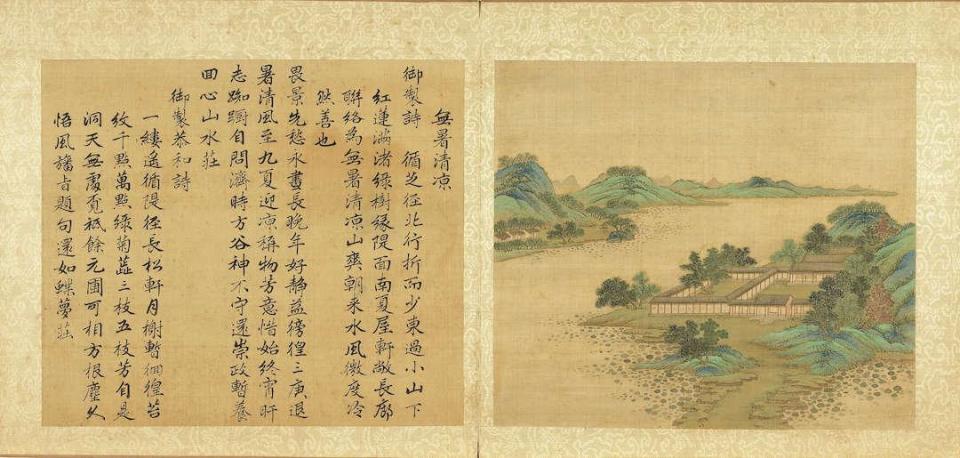 無暑清凉
御製詩　循芝徑北行折而少東過小山下
紅蓮滿渚綠樹緣隄面南夏屋軒敞長廊
聯絡為無暑清凉山爽朝来水風微度泠
然善也
畏景先愁永晝長晚年好静益徬徨三庚退
暑清風至九夏迎凉稱物芳意惜始終宵旰
志踟躕自問濟時方谷神不守還崇政暫養
回心山水莊
御製恭和詩
一縷遙循隄徑長松軒月榭暫徊徨苔
紋千點萬點綠菊蕋三枝五枝芳自是
洞天無處覔祗餘元圃可相方根塵久
悟風旛旨題句還如蝶夢莊